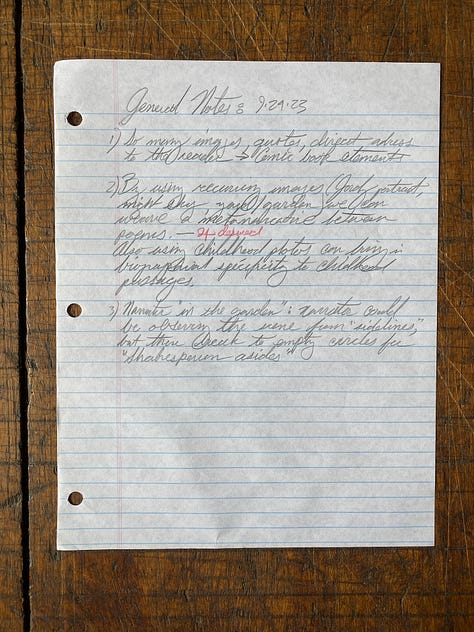 General Notes: 9.29.23
1) So many images, quotes, direct adress
to the reader → Comic book elements
2) By using recurring images ( portrait,
night sky, garden) we can
weave a metanarrative between
poems. — if desired
Also using childhood photos can bring in
biographical specificity to childhood
passages.
3) Narrator "in the garden": narrator could
be observing the scene from "sidelines,"
but then break to empty circles for
"Shakesperian asides"